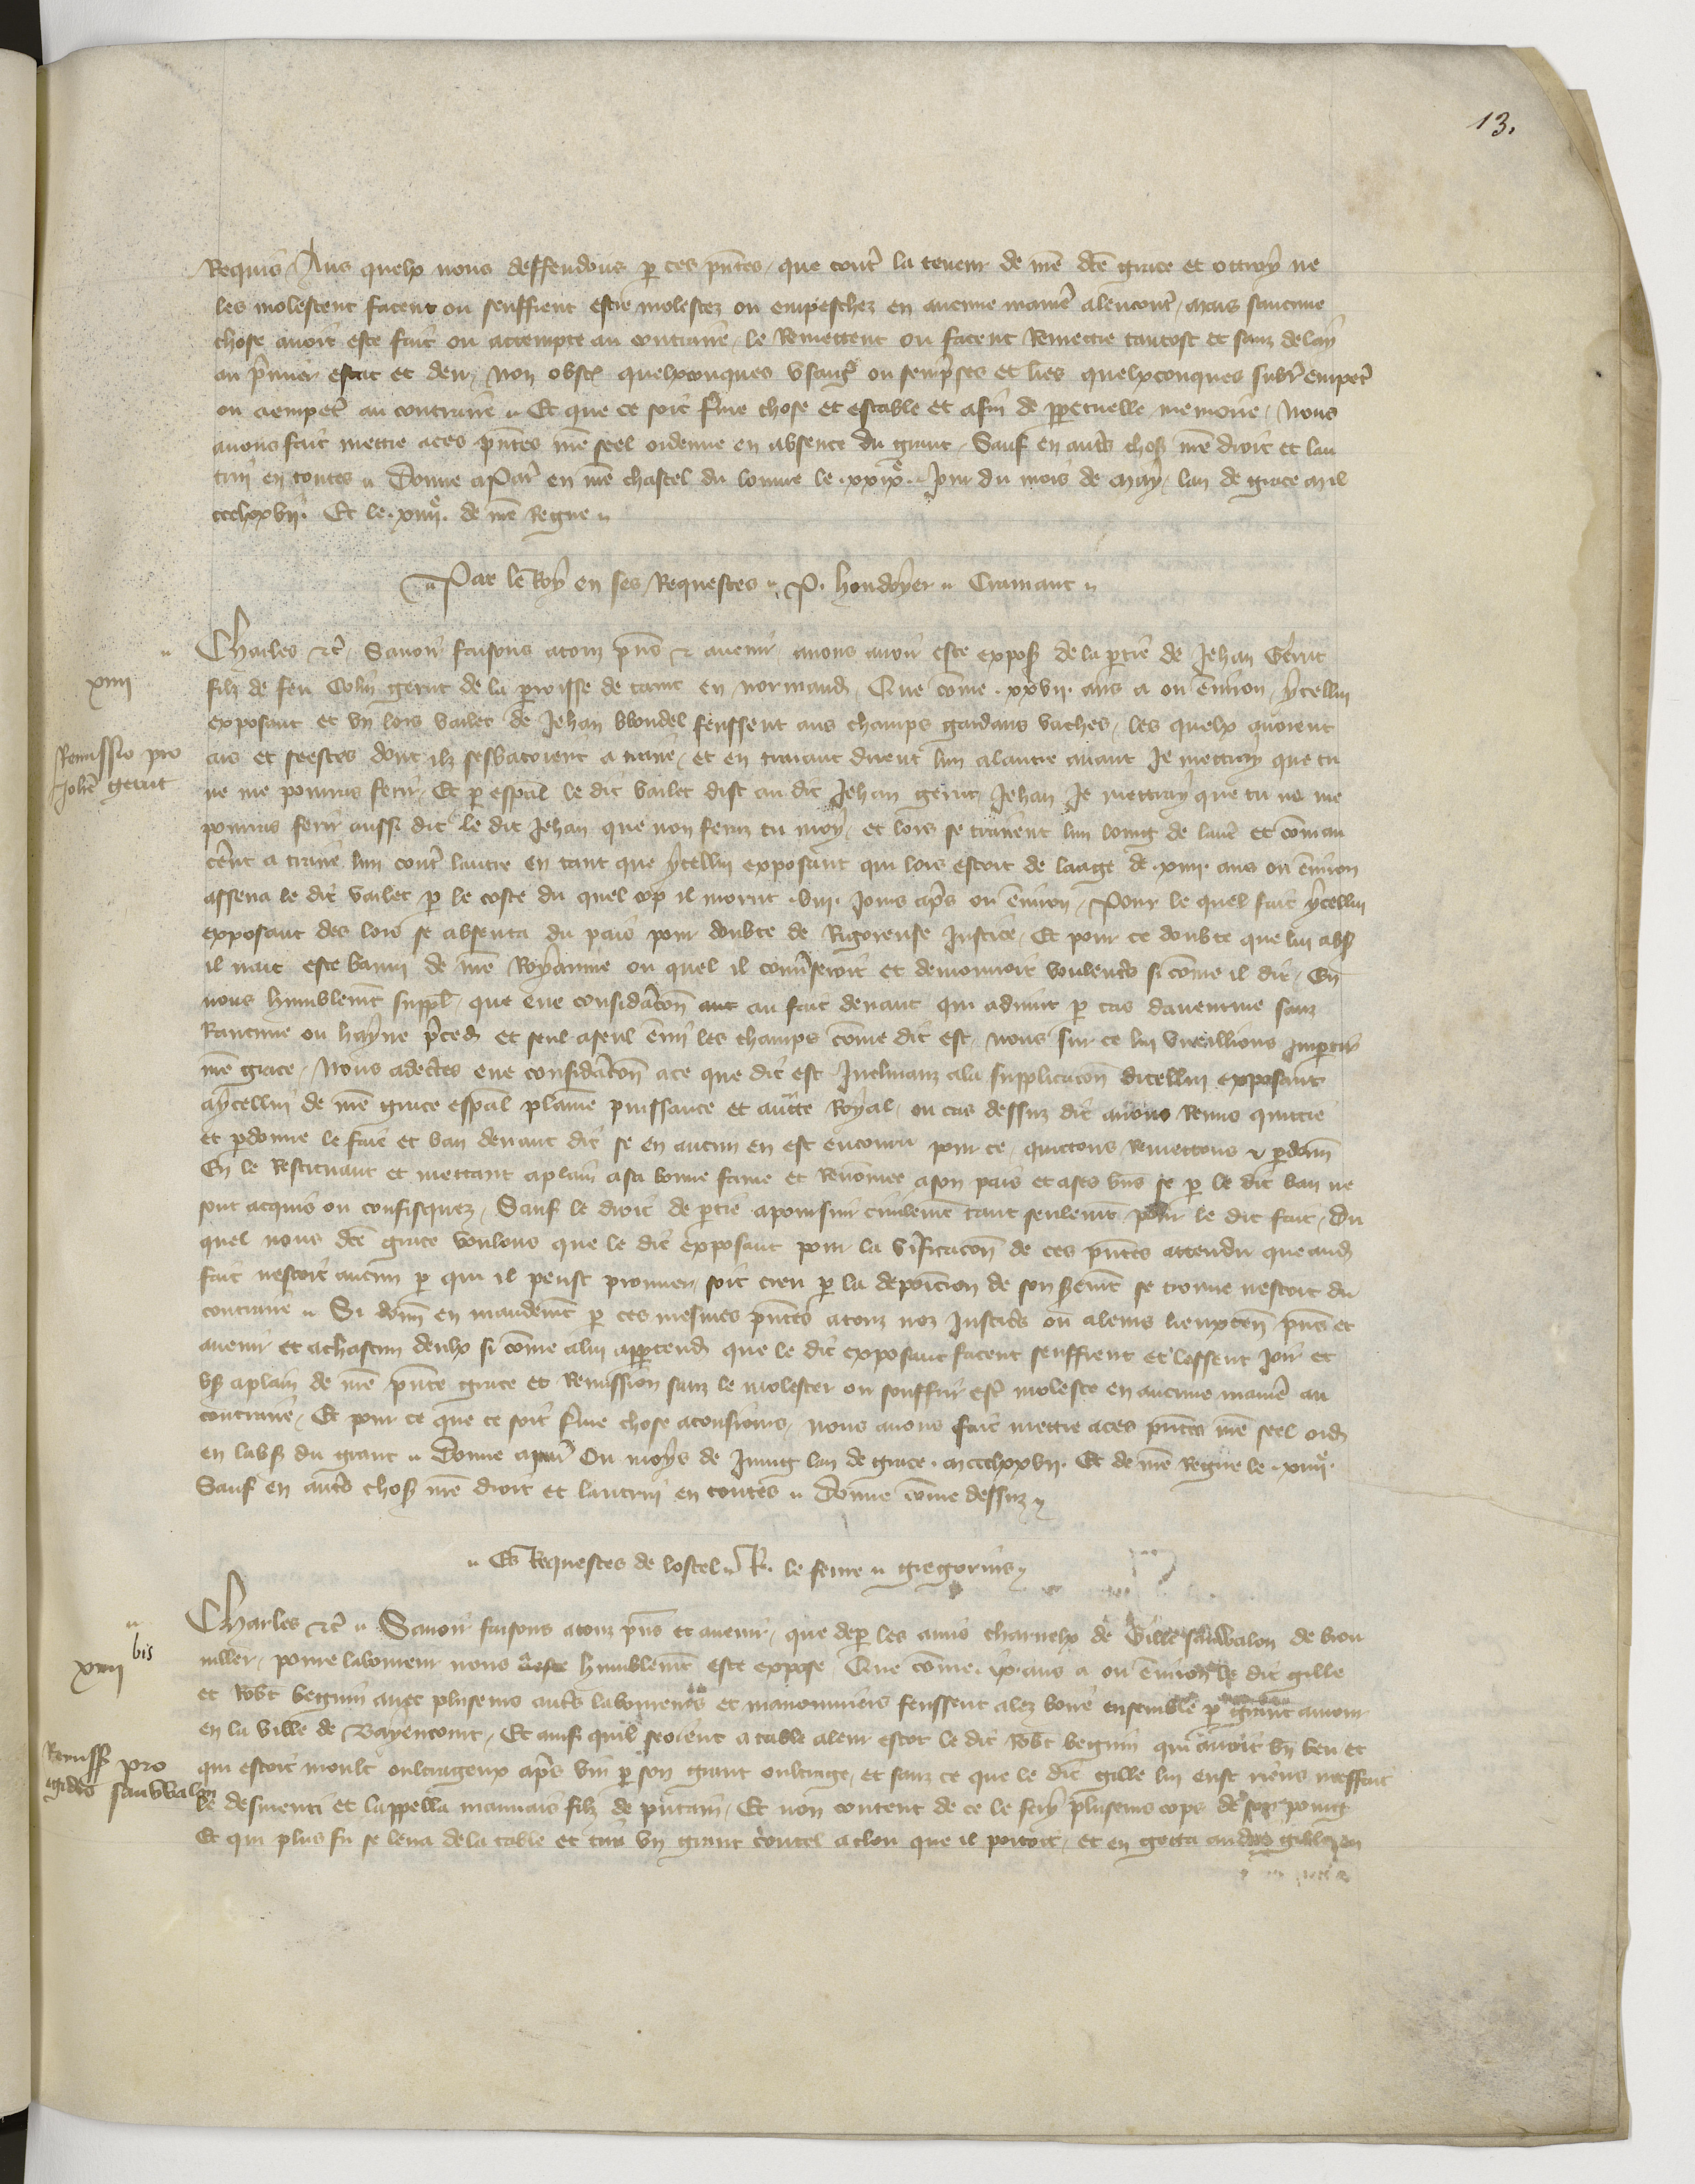 13.
Requis Aus quelx nous deffendons p ces pntes que contr la teneur de nre dce grace et ottroy ne
les molestent facent ou seuffrent estre molestez ou empeschez en aucune manie alencontr mais saucune
chose avoit este fait ou attempte au contraire le Remettent ou facent Remettre tantost et sanz delay
au primier estat et deu Non obst quelxconques usaige ou
ou a empetr au contraire Et que ce soit ferme chose et estable et afin de perpetuelle memoire Nous
avons fait mettre a ces pntes nre seel ordenne en absence du grant Sauf en autres choses nre droit et lau
trui en toutes Donne a Par en nre chastel du louvre le xxix e Jour du mois de May lan de grace mil
ccclxxvii Et le xiiii e de nre Regne
Par le Roy en ses Requestes P. hondoyer Cramant
xiiii
Charles etc Savoir faisons a touz pns et avenir a nous avoir este expose de la partie de Jehan Gerut
filz de feu Colin gerut de la parroisse de en normand Que come xxvii ans a ou environ ycellui
exposant et un lors vallet de Jehan blondel feussent aus champs gardans vaches les quelx avoient
Remissio pro
Johe gerut
ars et seestes dont ilz sesbatoient a traire et en traiant dirent lun alautre avant Je mettray que tu
ne me pourras ferir Et p espal le dit vallet dist au dit Jehan gerut Jehan Je mettray que tu ne me
pourras ferir aussi dit le dit Jehan que non feraz tu moy et lors se trairent lun loing de lautr et coman
cerent a traire lun contr lautre en tant que ycellui exposant qui lors estoit de laage de xiiii ans ou environ
assena le dit vallet p le coste du quel cop il morut viii Jours apres ou environ Pour le quel fait ycellui
exposant des lors se absenta du pais pour doubte de Rigoreuse Justice Et pour ce doubte que lui abs
il nait este banni de nre Royaume ou quel il converseroit et demourroit voulentrs si come il dit En
nous humblemt suppl que eue consideracon au fait devant qui advint p cas daventure sanz
Rancune ou hayne preced et seul a seul emi les champs come dit est nous sur ce lui vueillions impartir
nre grace Nous adectes eue consideracon a ce que dit est Inclinanz a la supplicacon dicellui exposant
a ycellui de nre grace espal plaine puissance et auctte Royal ou cas dessuz dit avons Remis quittie
et pdonne le fait et ban devant dit se en aucun en est encouru pour ce quittons Remettons et pdonn
En le Restituant et mettant a plain a sa bonne fame et Renomee a son pais et a ses biens se p le dit ban ne
sont acquis ou confisquez Sauf le droit de partie a poursuir civilemt tant seulemt pour le dit fait Du
quel nous dce grace voulons que le dit exposant pour la verificacon de ces pntes attendu que aud
fait nestoit aucun p qui il peust prouver soit creu p la deposicion de son seremt se trouve nestoit du
contraire Si donn en mandemt p ces mesmes pntes a touz noz Justiciers ou a leurs lieuxten pns et
avenir et a chascun deulx si come a lui appartiend que le dit exposant facent seuffrent et lessent Joir et
user a plain de nre pnte grace et Remission sanz le molester ou souffrir estr moleste en aucune manie au
contraire Et pour ce que ce soit ferme chose a tousiours nous avons fait mettre a ces pntes nre seel ord
en labs du grant Donne a par Ou moys de Juing lan de grace mccclxxvii Et de nre Regne le xiiii e
Sauf en autrs choses nre droit et lautrui en toutes Donne come dessuz
Es Requestes de lostel R. le fevre gregorius
xiiii bis
Charles etc Savoir faisons a touz pns et avenir que de p les amis charnelx de Gille sauwalon de
viller povre laboureur nous humblemt este expose Que come ix ans a ou environ le dit gille
et Robt beguin avec plusieurs autrs laboureurs et manouvriers feussent alez boire ensemble p grant amour
en la ville de Bayencourt Et ainsi quil seoient a table a leur escot le dit Robt beguin qui avoit bn beu et
Remiss pro
egidio sauwalon
qui estoit moult oultrageux apres vin p son grant oultrage et sanz ce que le dit gille lui eust riens meffait
le desmenti et lappella mauvais filz de putain Et non content de ce le fery plusieurs cops de son poing
Et qui plus fu se leva de la table et tira un grant coutel a clou que il portoit et en getta au dit gille en